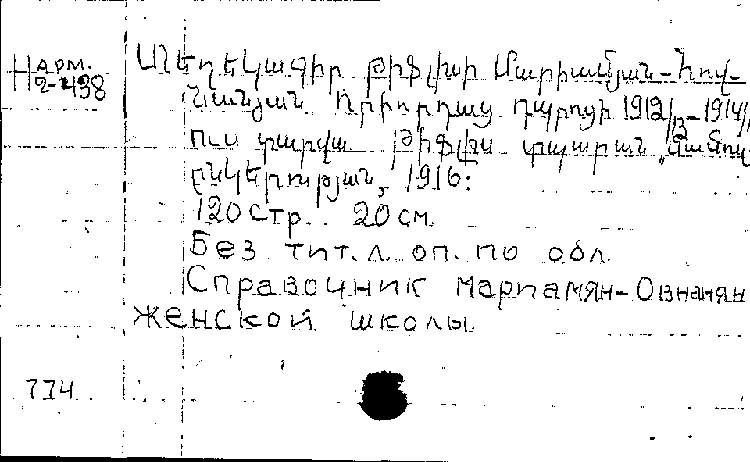 Нарм.
2-498
Տեղեկագիր Թիֆլիսի Մարիամյան-Հով-
նանյան Օրիորդաց դպրոցի 1912/13-1914/
ուս տարվա Թիֆլիս տպարան
ընկերության, 1916:
120 стр. 20 см.
Без тит. л. оп. по обл
Справочник Мариамян-Овнанян
женской школы
774